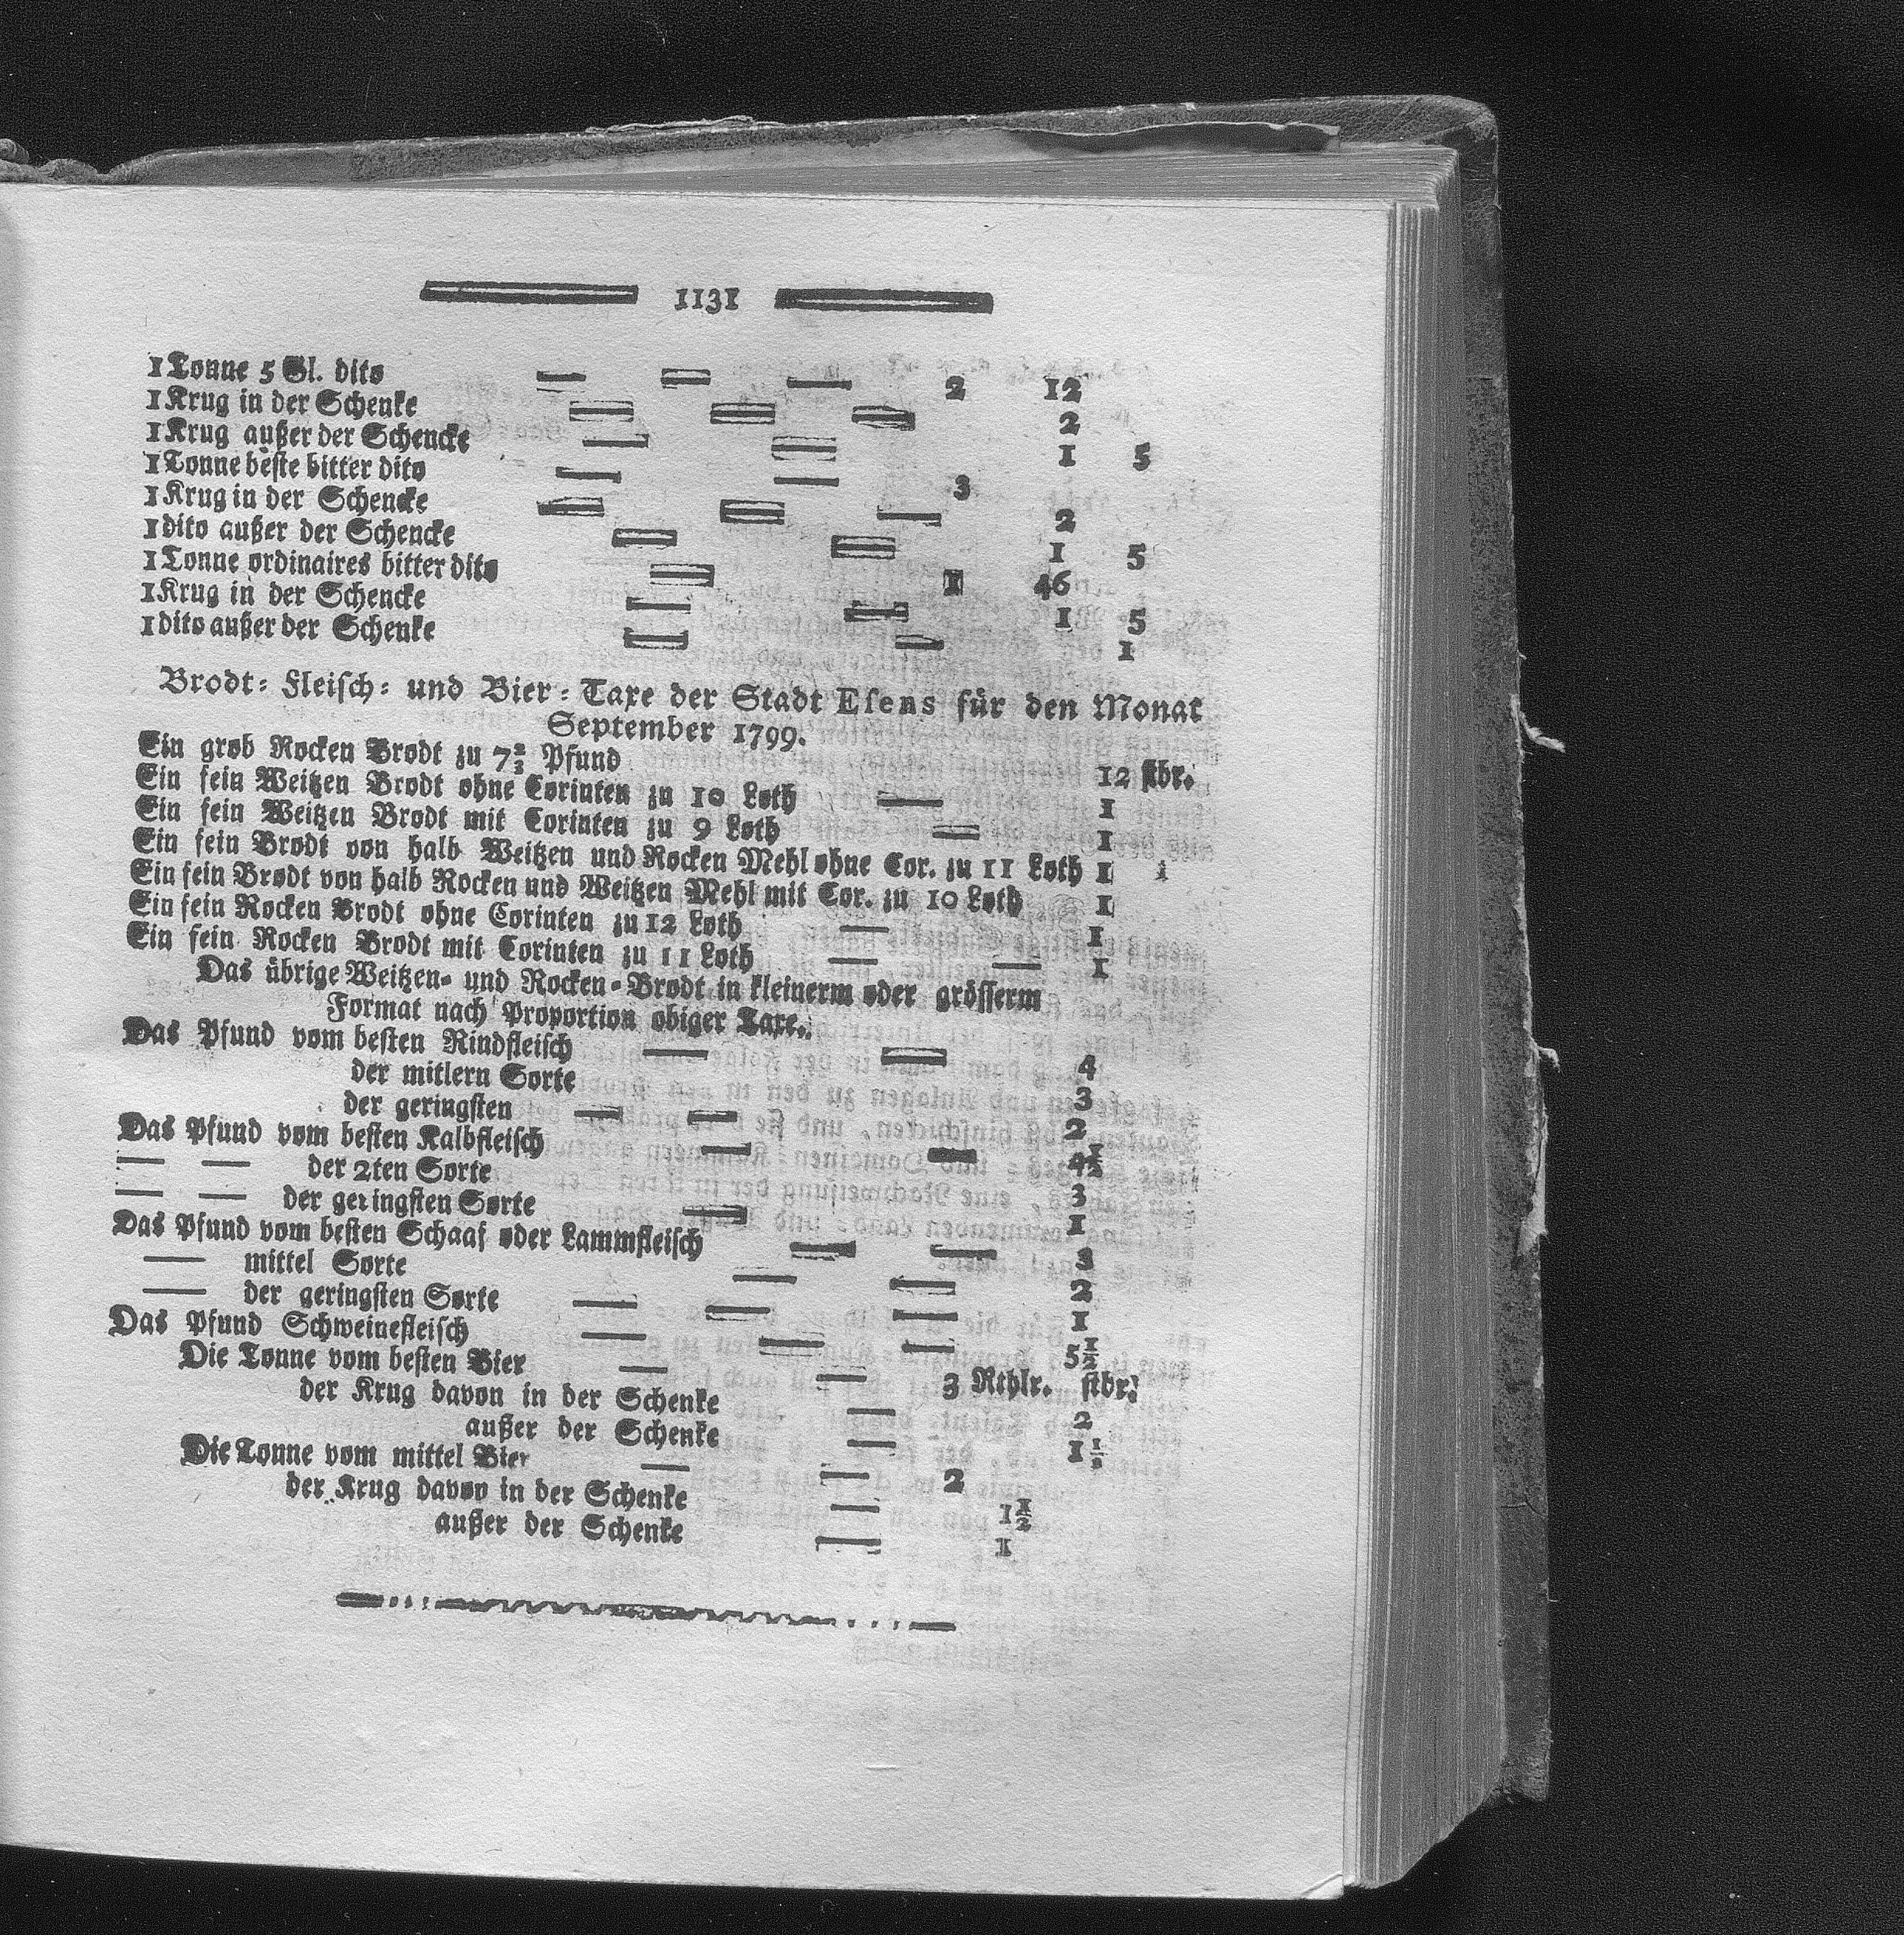 1131
1 Tonne 5 Gl. dito — — — 2 12
1 Krug in der Schenke — — — 2
1 Krug außer der Schencke — — 1 5
1 Tonne beste bitter dito — — 3
1 Krug in der Schencke — — — 2
1 dito außer der Schencke — — 1 5
1 Tonne ordinaires bitter dito — 1 46
1 Krug in der Schencke — — 1 5
1 dito außer der Schenke — — 1
Brodt- Fleisch- und Bier-Taxe der Stadt Esens für den Monat
September 1799.
Ein grob Rocken Brodt zu 7⅔ Pfund 12 stbr.
Ein fein Weitzen Brodt ohne Corinten zu 10 Loth — 1
Ein fein Weitzen Brodt mit Corinten zu 9 Loth — 1
Ein fein Brodt von halb Weitzen und Rocken Mehl ohne Cor. zu 11 Loth 1
Ein fein Brodt von halb Rocken und Weitzen Mehl mit Cor. zu 10 Loth 1
Ein fein Rocken Brodt ohne Corinten zu 12 Loth — 1
Ein fein Rocken Brodt mit Corinten zu 11 Loth — — 1
Das übrige Weitzen- und Rocken-Brodt in kleinerm oder grösserm
Format nach Proportion obiger Taxe.
Das Pfund vom besten Rindfleisch — — 4
der mitlern Sorte 3
der geringsten — — 2
Das Pfund vom besten Kalbfleisch — — 4½
— — der 2ten Sorte 3
— — der geringsten Sorte — 1
Das Pfund vom besten Schaaf oder Lammfleisch — — 3
— mittel Sorte — — 2
— der geringsten Sorte — — — 1
Das Pfund Schweinefleisch — — — 5½
Die Tonne vom besten Bier — — 3 Rthlr. stbr.
der Krug davon in der Schenke — 2
außer der Schenke — 1½
Die Tonne vom mittel Bier — — 2
der Krug davon in der Schenke — 1½
außer der Schenke — 1